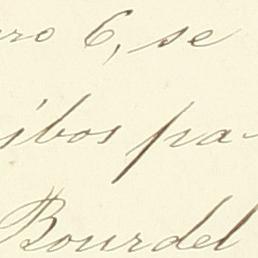 ro 6, se
ibos pa-
Bourdel